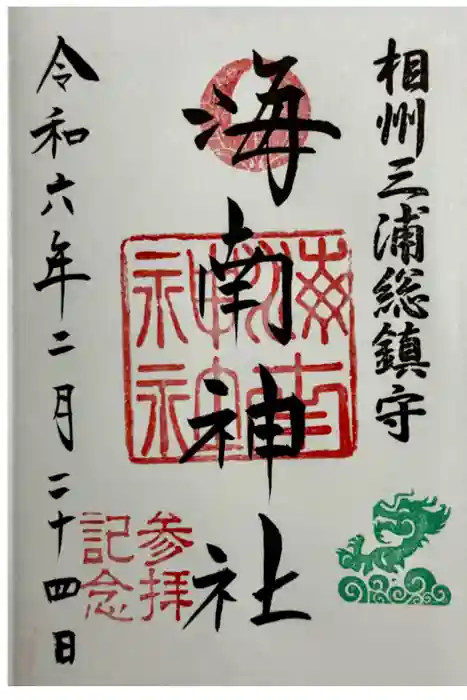 相州三浦総鎮守
海南神社
参拝
記念
令和六年二月二十四日